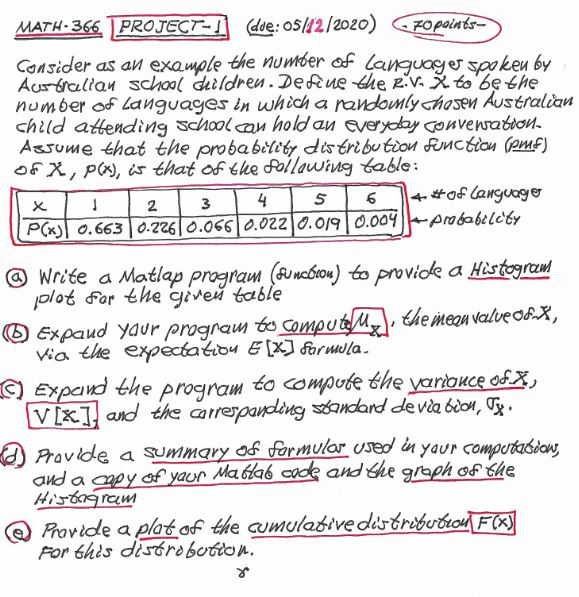 MATH-366 PROJECT-1 (due: 05/12/2020) -70 points-
Consider as an example the number of languages spoken by
Australian school children. Define the R.V. X to be the
number of languages in which a randomly chosen Australian
child attending school can hold an everyday conversation.
Assume that the probability distribution function (pmf)
of X, P(x), is that of the following table:
X 1 2 3 4 5 6 ← # of languages
P(x) 0.663 0.226 0.066 0.022 0.019 0.004 ← probability
(a) Write a Matlap program (function) to provide a Histogram
plot for the given table
(b) Expand your program to compute μx, the mean value of X,
via the expectation E[X] formula.
(c) Expand the program to compute the variance of X,
V[X], and the corresponding standard deviation, σx.
(d) Provide a summary of formulas used in your computations,
and a copy of your Matlab code and the graph of the
Histogram
(e) Provide a plot of the cumulative distribution F(x)
For this distribution.